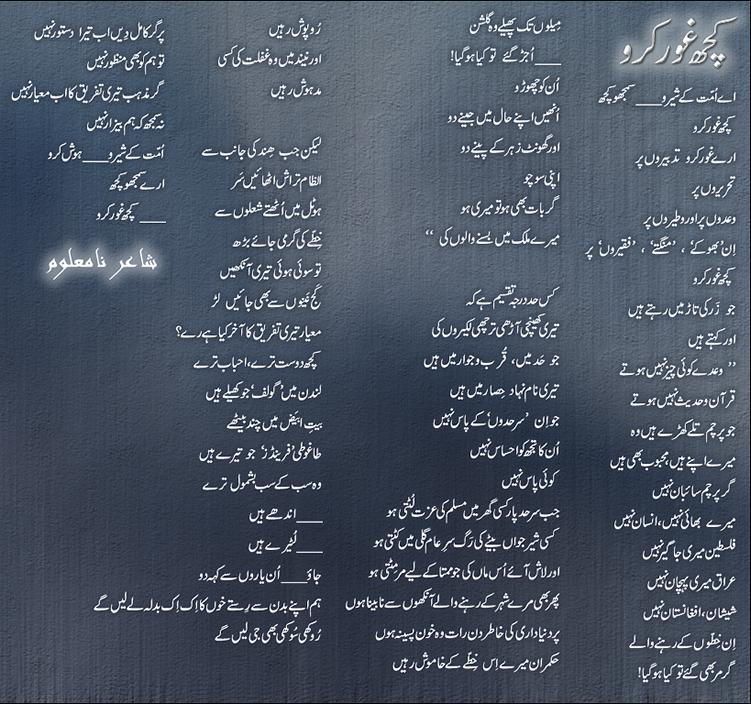 کچھ غور کرو
اے اُمّت کے شیرو ___ سمجھو کچھ
کچھ غور کرو
ارے غور کرو تدبیروں پر
تحریروں پر
وعدوں پر اور وطیروں پر
اِن ’بھوکے‘ ، ’منگتے‘ ، ’فقیروں‘ پر
کچھ غور کرو
جو زَر کی تاڑ میں رہتے ہیں
اور کہتے ہیں
’’ وعدے کوئی چیز نہیں ہوتے
قرآن و حدیث نہیں ہوتے
جو پرچم تلے کھڑے ہیں وہ
میرے اپنے ہیں، محبوب بھی ہیں
گر پرچم سائبان نہیں
میرے بھائی نہیں، انسان نہیں
فلسطین میری جاگیر نہیں
عراق میری پہچان نہیں
شیشان، افغانستان نہیں
اِن خطّوں کے رہنے والے
گر مر بھی گئے تو کیا ہو گیا!
میلوں تک پھیلے وہ گلشن
___ اُجڑ گئے تو کیا ہو گیا!
اُن کو چھوڑو
اُنھیں اپنے حال میں جینے دو
اور گھونٹ زہر کے پینے دو
اپنی سوچو
گر بات بھی ہو تو میری ہو
میرے ملک میں بسنے والوں کی ‘‘
کس حد درجہ تقسیم ہے کہ
تیری کھینچی آڑھی ترچھی لکیروں کی
جو حَد میں، قُرب و جوار میں ہیں
تیری نام نہاد حِصار میں ہیں
جو اِن ’سرحدوں‘ کے پاس نہیں
اُن کا تجھ کو احساس نہیں
کوئی پاس نہیں
جب سرحد پار کسی گھر میں مسلم کی عزت لُٹتی ہو
کسی شیر جواں بیٹے کی رَگ سرِ عام گلی میں کٹتی ہو
اور لاش آئے اُس ماں کی جو ممتا کے لیے مر مِٹتی ہو
پھر بھی مرے شہر کے رہنے والے آنکھوں سے نابینا ہوں
پر دنیا داری کی خاطر دن رات وہ خون پسینہ ہوں
حکمران میرے اِس خِطّے کے خاموش رہیں
رُوپوش رہیں
اور نیند میں وہ غفلت کی کسی
مدہوش رہیں
لیکن جب ہِند کی جانب سے
الظام تراش اٹھائیں سَر
ہوٹل میں اُٹھتے شعلوں سے
خِطّے کی گرمی جائے بڑھ
تو سوئی ہوئی تیری آنکھیں
کَج عَینوں سے بھی جائیں لڑ
معیار تیری تفریق کا آخر کیا ہے رے؟
کچھ دوست ترے، احباب ترے
لندن میں ’گولف‘ جو کھیلے ہیں
بیتِ ابیَض میں چند بیٹھے
طاغوطی ’فرینڈز‘ جو تیرے ہیں
وہ سب کے سب بشمول ترے
___ اندھے ہیں
___ لُٹیرے ہیں
جاؤ ___ اُن یاروں سے کہہ دو
ہم اپنے بدن سے رِستے خوں کا اِک اِک بدلہ لے لیں گے
رُوکھی سُوکھی بھی جی لیں گے
پر گر کامل دِیں اب تیرا دستور نہیں
تو ہم کو بھی منظور نہیں
گر مذہب تیری تفریق کا اب معیار نہیں
نہ سمجھ کہ ہم بیزار نہیں
اُمّت کے شیرو ___ ہوش کرو
ارے سمجھو کچھ
___ کچھ غور کرو
شاعر نامعلوم